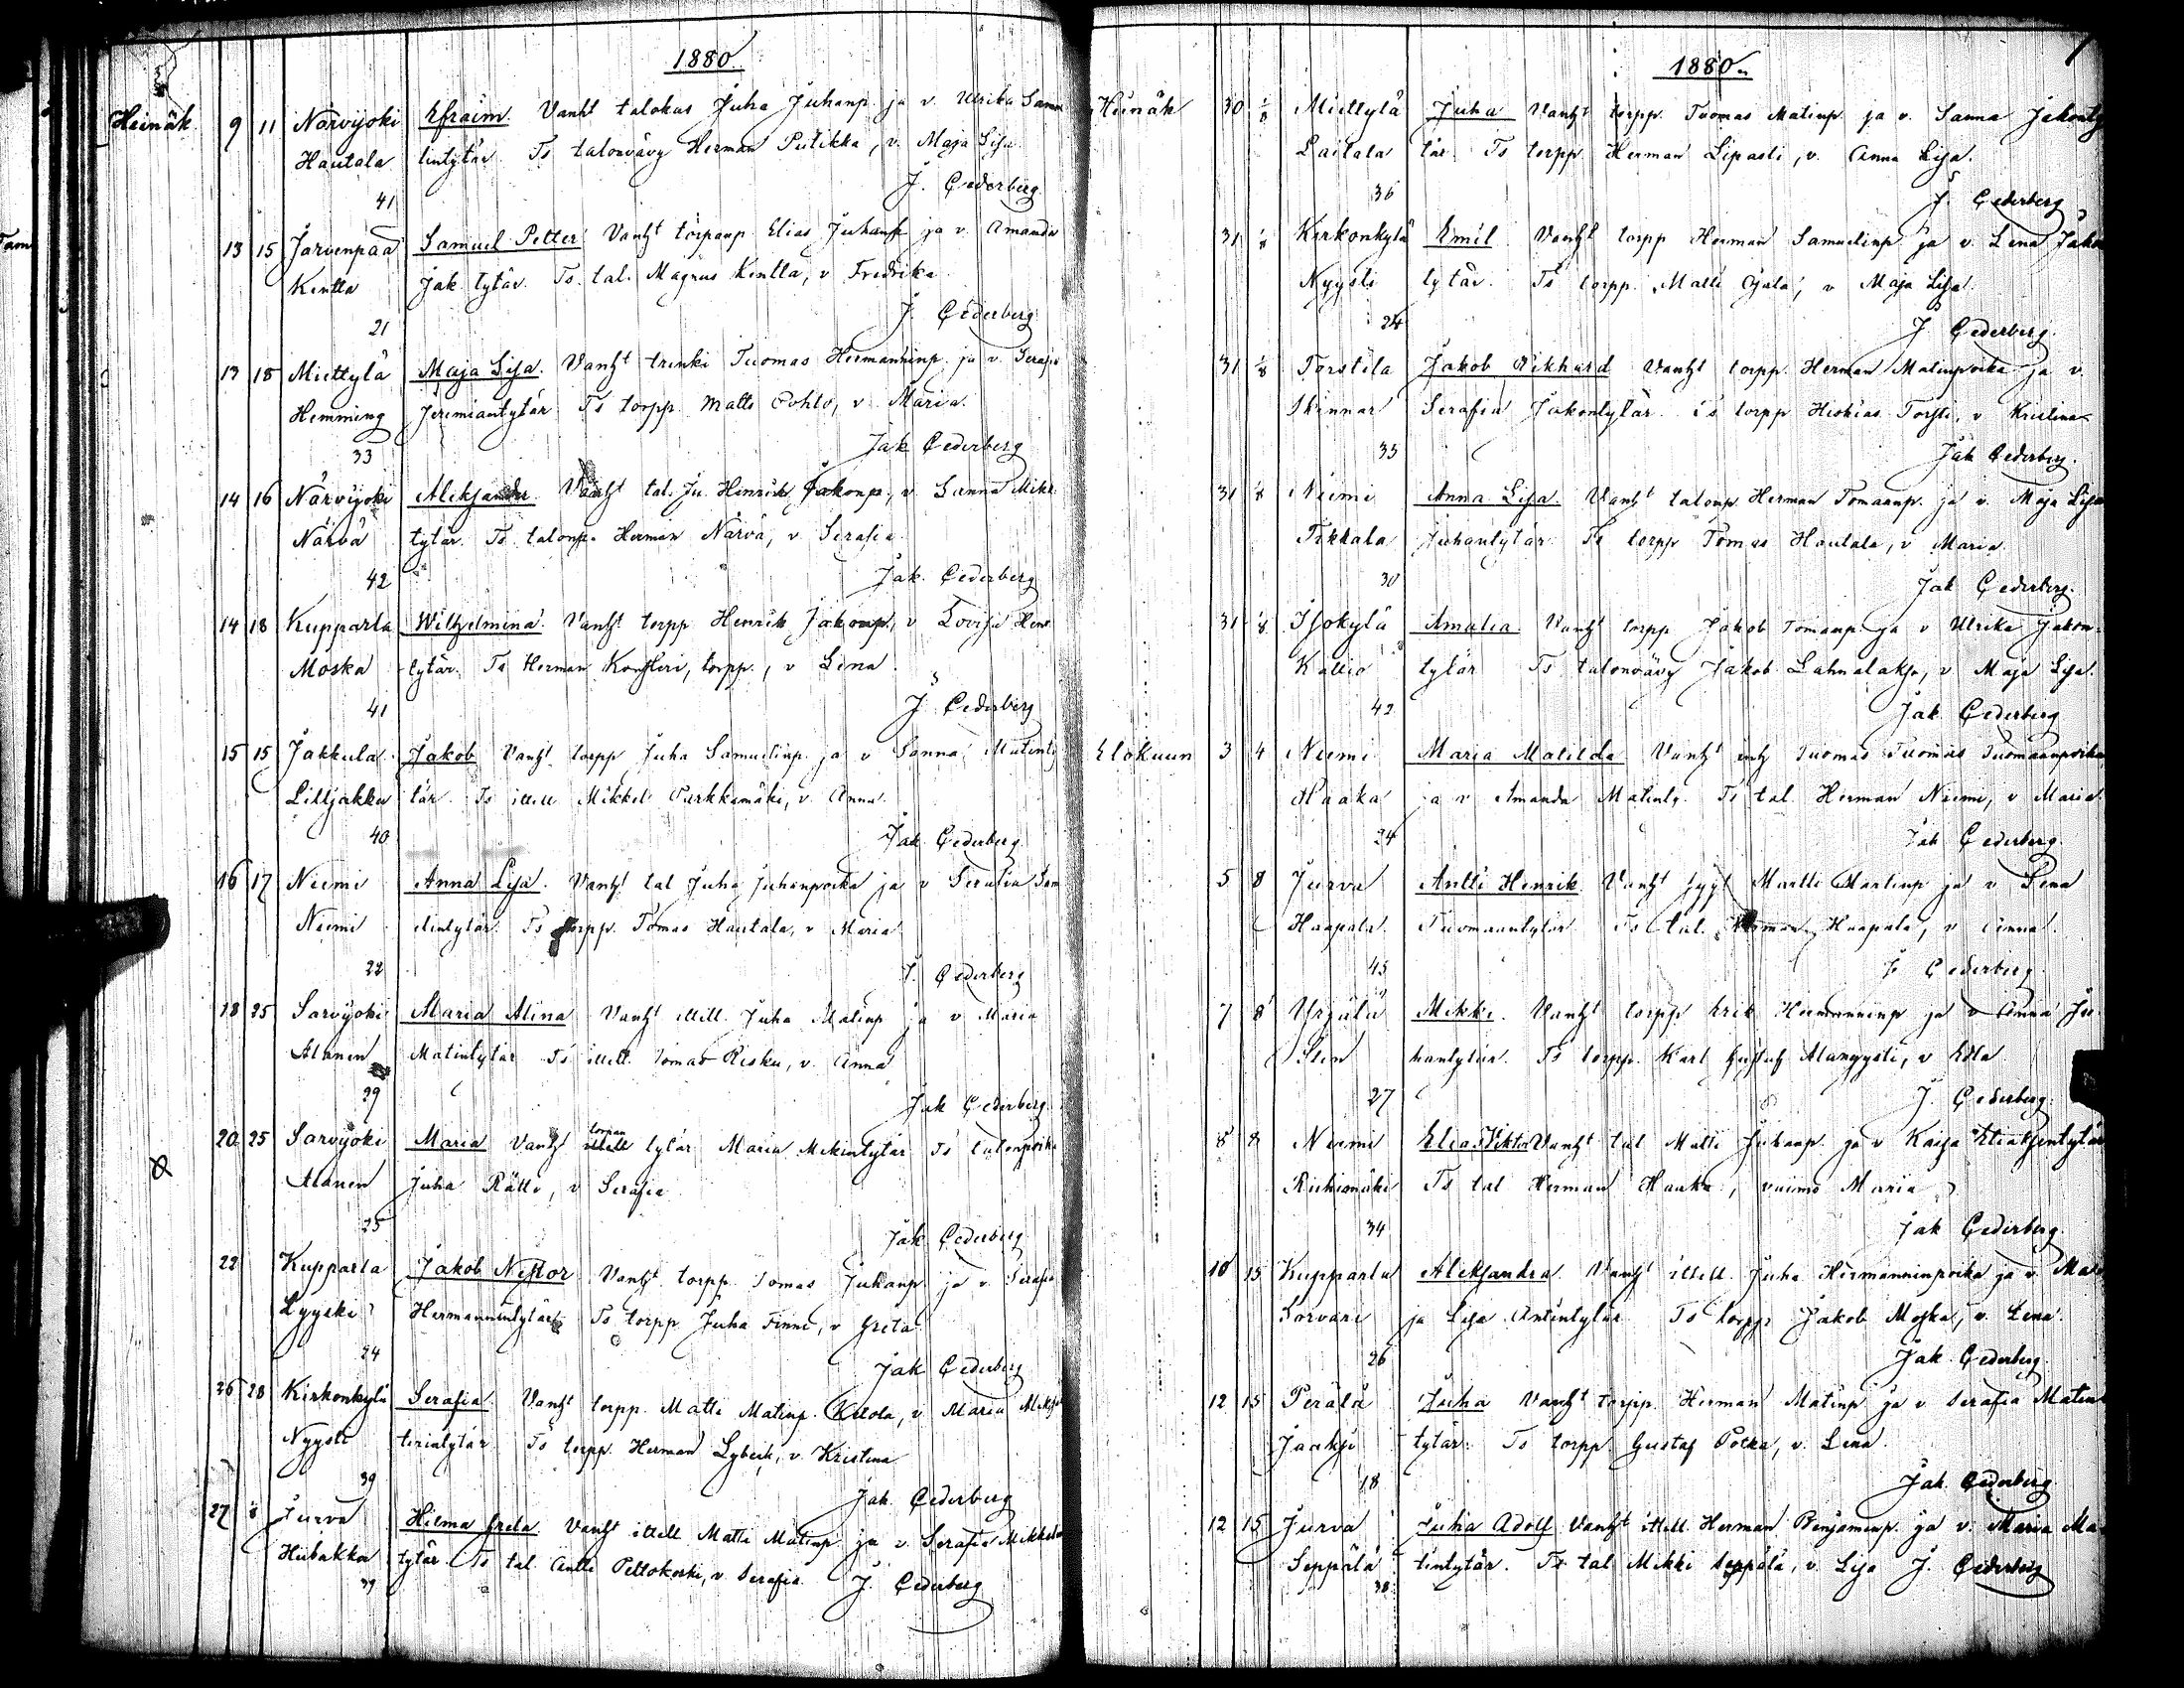 1880.
Heinäk. 9 11 Närvijoki Efraim. Vanht talokas Juha Juhanp. ja v. Ulrika Samu
Hautala lintytär. Ts talonvävy Herman Pulikka, v. Maja Lisa.
41 J. Cederberg
13 15 Järvenpää Samuel Petter Vanht torpanp Elias Juhanp ja v. Amanda
Kentta Jak. tytär. Ts. tal. Magnus Kentta, v Fredrika
21 J. Cederberg
13 18 Miettylä Maja Lisa. Vanht trenki Tuomas Hermanninp. ja v. Serafia
Hemming Jeremiantytär Ts torpp. Matts Pohto, v. Maria.
33 Jak Cederberg
14 16 Närvijoki Aleksander. Vanht tal. Ju. Hinrik Jakonp, v Sanna Mikk.
Närvä tytär. Ts. talonp. Herman Närvä, v Serafia
42 Jak. Cederberg
14 18 Kupparla Wilhelmina. Vanht. torpp Henrik Jakonp, v Lovisa Henr
Moska tytär. Ts Herman Konsteri, torpp., v Lena.
41 J. Cederberg
15 15 Jakkula Jakob Vanht torpp Juha Samuelinp. ja v Sanna Matinty
Lilljakku tär. Ts itell Mikkel Purkkamäki, v. Anna.
40 Jak Cederberg
16 17 Niemi Anna Lisa. Vanht tal Juha Juhanpoika ja v Serafia Sam
Niemi elintytär. Ts torpp. Tomas Hautala, v Maria
22 J. Cederberg
18 25 Sarvijoki Maria Alina Vanht itell. Juha Matinp ja v Maria
Alanen Matintytär Ts itell. Tomas Risku, v. Anna
39 Jak Cederberg
20 25 Sarvijoki Maria Vanht tytär Maria Mikintytär Ts talonpoika
Alanen Juha Rätti, v Serafia
25 Jak Cederberg
22 Kupparla Jakob Nestor Vanht. torpp. Tomas Juhanp ja v. Serafia
Lyyski Hermannintytär Ts torpp. Juha Finni, v Greta
24 Jak Cederberg
26 28 Kirkonkylä Serafia. Vanht torpp. Matti Matinp. Ketola, v Maria
Nyysti terintytär Ts torpp. Herman Lybeck, v. Kristina
39 Jak. Cederberg
27 Jurva Hilma Greta. Vanht itell Matti Matinp ja v Serafia Mikkelin
Hiibakka tytär. Ts tal. Antti Peltokoski, v. Serafia. J. Cederberg
39
1880.
Heinäk 30 1/8 Miettylä Juha Vanht torpp. Tuomas Matinp ja v. Sanna Jakonty
Laitala tär. Ts torpp. Herman Lipasti, v. Anna Lisa.
36 J. Cederberg
31 1/8 Kirkonkylä Emil Vanht torpp Herman Samuelinp ja v Lena Jako
Nyysti tytär. Ts torpp. Matti Ojala, v Maja Lisa.
24 J Cederberg.
31 1/8 Torstila Jakob Rikhard Vanht torpp. Herman Matinpoika ja v.
Skinnar Serafia Jakontytär. Ts torpp Hiskias Torsti, v Kristina
33 Jak Cederberg.
31 1/8 Niemi Anna Lisa. Vanht talonp. Herman Tomaanp. ja v. Maja Lisa
Tikkala Juhantytär Ts torpp Tomas Hautala, v Maria.
30 Jak Cederberg.
31 1/8 Isokylä Amalia. Vanht torpp Jakob Tomanp ja v Ulrika Jakon
Kallio tytär Ts talonvävy Jakob Lahnalaksa, v Maja Lisa.
42 Jak Cederberg
Elokuun 3 4 Niemi Maria Matilda Vanht Tuomas Tuomaanpoika
Haaka ja v Amanda Matinty. Ts tal. Herman Niemi, v Maria.
24 Jak Cederberg.
5 8 Jurva Antti Henrik. Vanht Martti Martinp ja v Lena
Haapala. Tuomaantytär Ts tal. Herman Haapala, v Anna.
45 J Cederberg.
7 8 Yrjälä Mikki. Vanht torpp Erik Hermanninp ja v Anna Ju
Sten hantytär. Ts torpp. Karl Gustaf Alanyysti, v Edla
27 J. Cederberg.
8 8 Niemi Elias Viktor Vanht tal Matti Juhanp. ja v Kaisa Eliaksentytär
Riihimäki Ts tal Herman Haaka, vaimo Maria
34 Jak Cederberg.
10 15 Kupparla Aleksandra. Vanht itell. Juha Hermanninpoika ja v Ma
Korvari ja Lisa Antintytär. Ts torpp Jakob Moska, v. Lena.
26 Jak. Cederberg
12 15 Perälä Juha Vanht torpp. Herman Matinp ja v Serafia Matin
Jaaksi tytär. Ts torpp. Gustaf Potka, v. Lena.
18 Jak. Cederberg
12 15 Jurva Juha Adolf Vanht itell Herman Benjaminp. ja v. Maria Ma
Seppälä tintytär. Ts tal Mikki Seppälä, v Lisa J. Cederberg
38